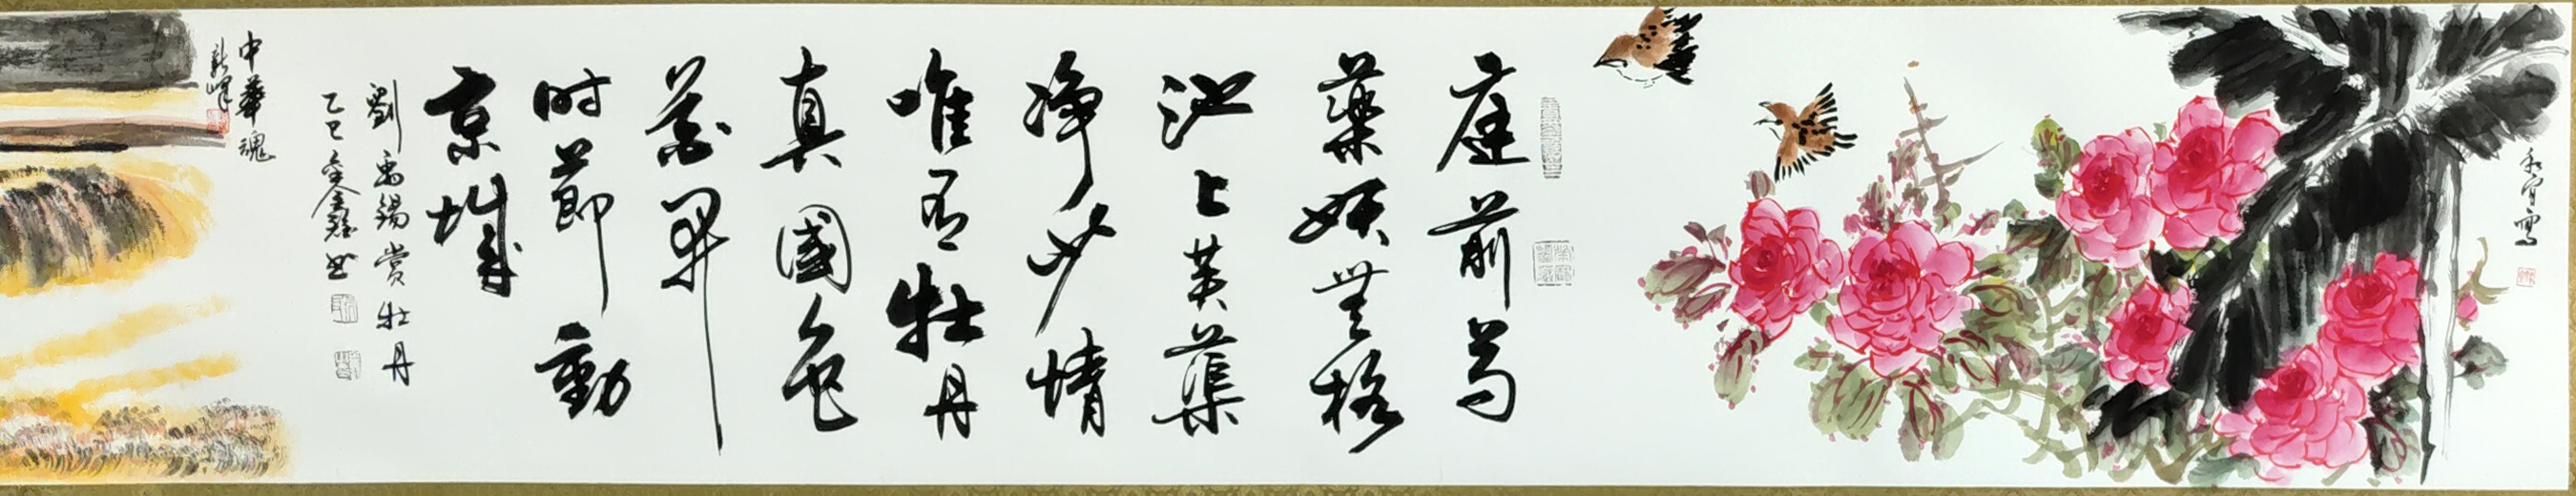 庭前芍
藥妖無格
池上芙蕖
净少情
唯有牡丹
真國色
花開
时節動
京城
劉禹錫賞牡丹
乙巳金鑫书
中華魂